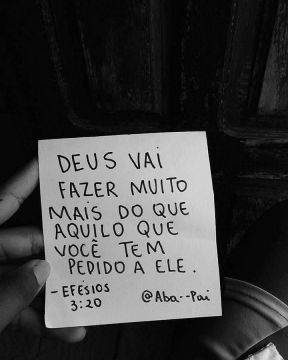 DEUS VAI
FAZER MUITO
MAIS DO QUE
AQUILO QUE
VOCÊ TEM
PEDIDO A ELE.
- EFÉSIOS
3:20
@Aba--Pai